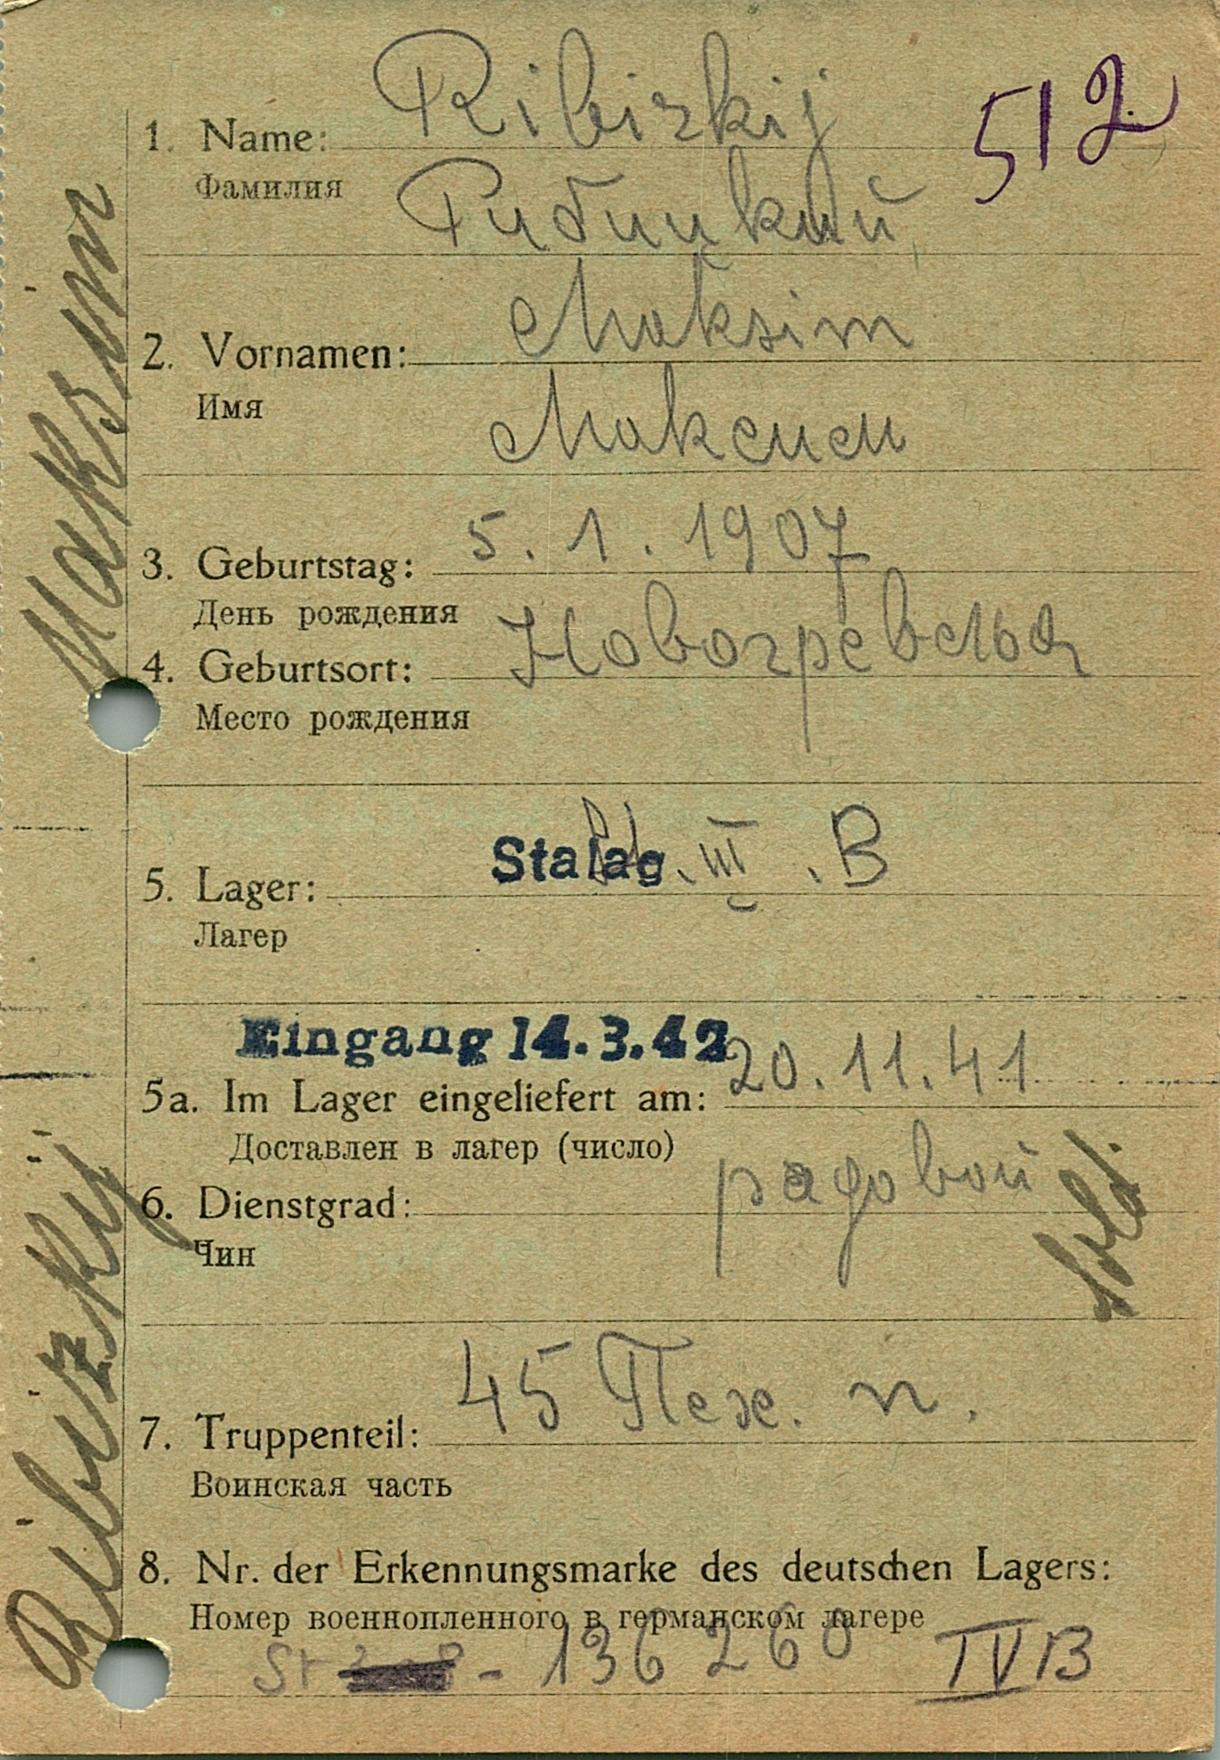 512
1. Name: Ribizkij
Фамилия Рибицкий
2. Vornamen: Maksim
Имя Максим
3. Geburtstag: 5. 1. 1907
День рождения
4. Geburtsort:
Место рождения
5. Lager: Stalag. III . B
Лагер
Eingang 14.3.42
5a. Im Lager eingeliefert am: 20. 11. 41
Доставлен в лагер (число)
6. Dienstgrad: рядовой Sold.
Чин
7. Truppenteil: 45 Пех. п.
Воинская часть
8. Nr. der Erkennungsmarke des deutschen Lagers:
Номер военнопленного в германском лагере
St - 136 260 IVB
Ribizkij Maksim